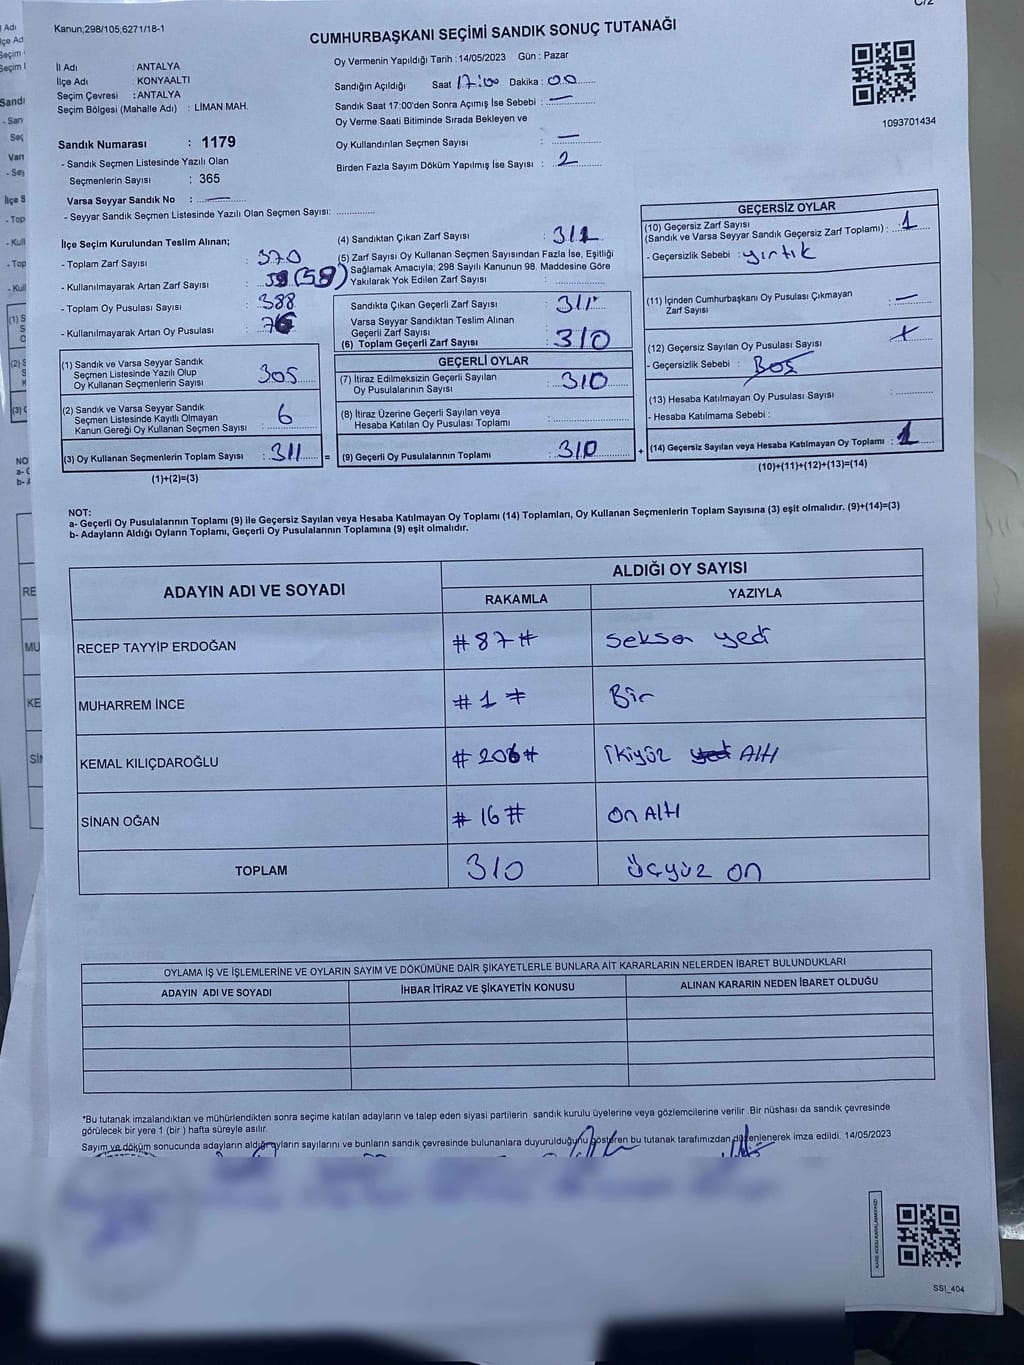 C/2
Kanun;298/105;6271/18-1
CUMHURBAŞKANI SEÇİMİ SANDIK SONUÇ TUTANAĞI
İl Adı : ANTALYA
İlçe Adı : KONYAALTI
Seçim Çevresi : ANTALYA
Seçim Bölgesi (Mahalle Adı) : LİMAN MAH.
Oy Vermenin Yapıldığı Tarih : 14/05/2023 Gün : Pazar
Sandığın Açıldığı Saat 17:00 Dakika : 00
Sandık Saat 17:00'den Sonra Açımış İse Sebebi : —
Oy Verme Saati Bitiminde Sırada Bekleyen ve
Oy Kullandırılan Seçmen Sayısı : —
Birden Fazla Sayım Döküm Yapılmış İse Sayısı : 2
1093701434
Sandık Numarası : 1179
- Sandık Seçmen Listesinde Yazılı Olan
Seçmenlerin Sayısı : 365
Varsa Seyyar Sandık No : —
- Seyyar Sandık Seçmen Listesinde Yazılı Olan Seçmen Sayısı: ..............
İlçe Seçim Kurulundan Teslim Alınan;
- Toplam Zarf Sayısı : 370
- Kullanılmayarak Artan Zarf Sayısı : 59 (58)
- Toplam Oy Pusulası Sayısı : 388
- Kullanılmayarak Artan Oy Pusulası :
(1) Sandık ve Varsa Seyyar Sandık
Seçmen Listesinde Yazılı Olup
Oy Kullanan Seçmenlerin Sayısı : 305
(2) Sandık ve Varsa Seyyar Sandık
Seçmen Listesinde Kayıtlı Olmayan
Kanun Gereği Oy Kullanan Seçmen Sayısı : 6
(3) Oy Kullanan Seçmenlerin Toplam Sayısı : 311 =
(1)+(2)=(3)
(4) Sandıktan Çıkan Zarf Sayısı : 311
(5) Zarf Sayısı Oy Kullanan Seçmen Sayısından Fazla İse, Eşitliği
Sağlamak Amacıyla; 298 Sayılı Kanunun 98. Maddesine Göre
Yakılarak Yok Edilen Zarf Sayısı : ..............
Sandıkta Çıkan Geçerli Zarf Sayısı : 311
Varsa Seyyar Sandıktan Teslim Alınan
Geçerli Zarf Sayısı
(6) Toplam Geçerli Zarf Sayısı : 310
GEÇERLİ OYLAR
(7) İtiraz Edilmeksizin Geçerli Sayılan
Oy Pusulalarının Sayısı : 310
(8) İtiraz Üzerine Geçerli Sayılan veya
Hesaba Katılan Oy Pusulası Toplamı : ..............
(9) Geçerli Oy Pusulalarının Toplamı : 310 +
GEÇERSİZ OYLAR
(10) Geçersiz Zarf Sayısı
(Sandık ve Varsa Seyyar Sandık Geçersiz Zarf Toplamı) : 1
- Geçersizlik Sebebi : yırtık
(11) İçinden Cumhurbaşkanı Oy Pusulası Çıkmayan
Zarf Sayısı : —
(12) Geçersiz Sayılan Oy Pusulası Sayısı :
- Geçersizlik Sebebi : Boş
(13) Hesaba Katılmayan Oy Pusulası Sayısı : ..............
- Hesaba Katılmama Sebebi :
(14) Geçersiz Sayılan veya Hesaba Katılmayan Oy Toplamı : 1
(10)+(11)+(12)+(13)=(14)
NOT:
a- Geçerli Oy Pusulalarının Toplamı (9) ile Geçersiz Sayılan veya Hesaba Katılmayan Oy Toplamı (14) Toplamları, Oy Kullanan Seçmenlerin Toplam Sayısına (3) eşit olmalıdır. (9)+(14)=(3)
b- Adayların Aldığı Oyların Toplamı, Geçerli Oy Pusulalarının Toplamına (9) eşit olmalıdır.
ADAYIN ADI VE SOYADI ALDIĞI OY SAYISI
RAKAMLA YAZIYLA
RECEP TAYYİP ERDOĞAN #87# seksen yedi
MUHARREM İNCE #1# Bir
KEMAL KILIÇDAROĞLU #206# İkiyüz yedi Altı
SİNAN OĞAN #16# on Altı
TOPLAM 310 üçyüz on
OYLAMA İŞ VE İŞLEMLERİNE VE OYLARIN SAYIM VE DÖKÜMÜNE DAİR ŞİKAYETLERLE BUNLARA AİT KARARLARIN NELERDEN İBARET BULUNDUKLARI
ADAYIN ADI VE SOYADI İHBAR İTİRAZ VE ŞİKAYETİN KONUSU ALINAN KARARIN NEDEN İBARET OLDUĞU
*Bu tutanak imzalandıktan ve mühürlendikten sonra seçime katılan adayların ve talep eden siyasi partilerin sandık kurulu üyelerine veya gözlemcilerine verilir .Bir nüshası da sandık çevresinde
görülecek bir yere 1 (bir ) hafta süreyle asılır.
Sayım ve döküm sonucunda adayların aldığı oyların sayılarını ve bunların sandık çevresinde bulunanlara duyurulduğunu gösteren bu tutanak tarafımızdan düzenlenerek imza edildi. 14/05/2023
SSI_404